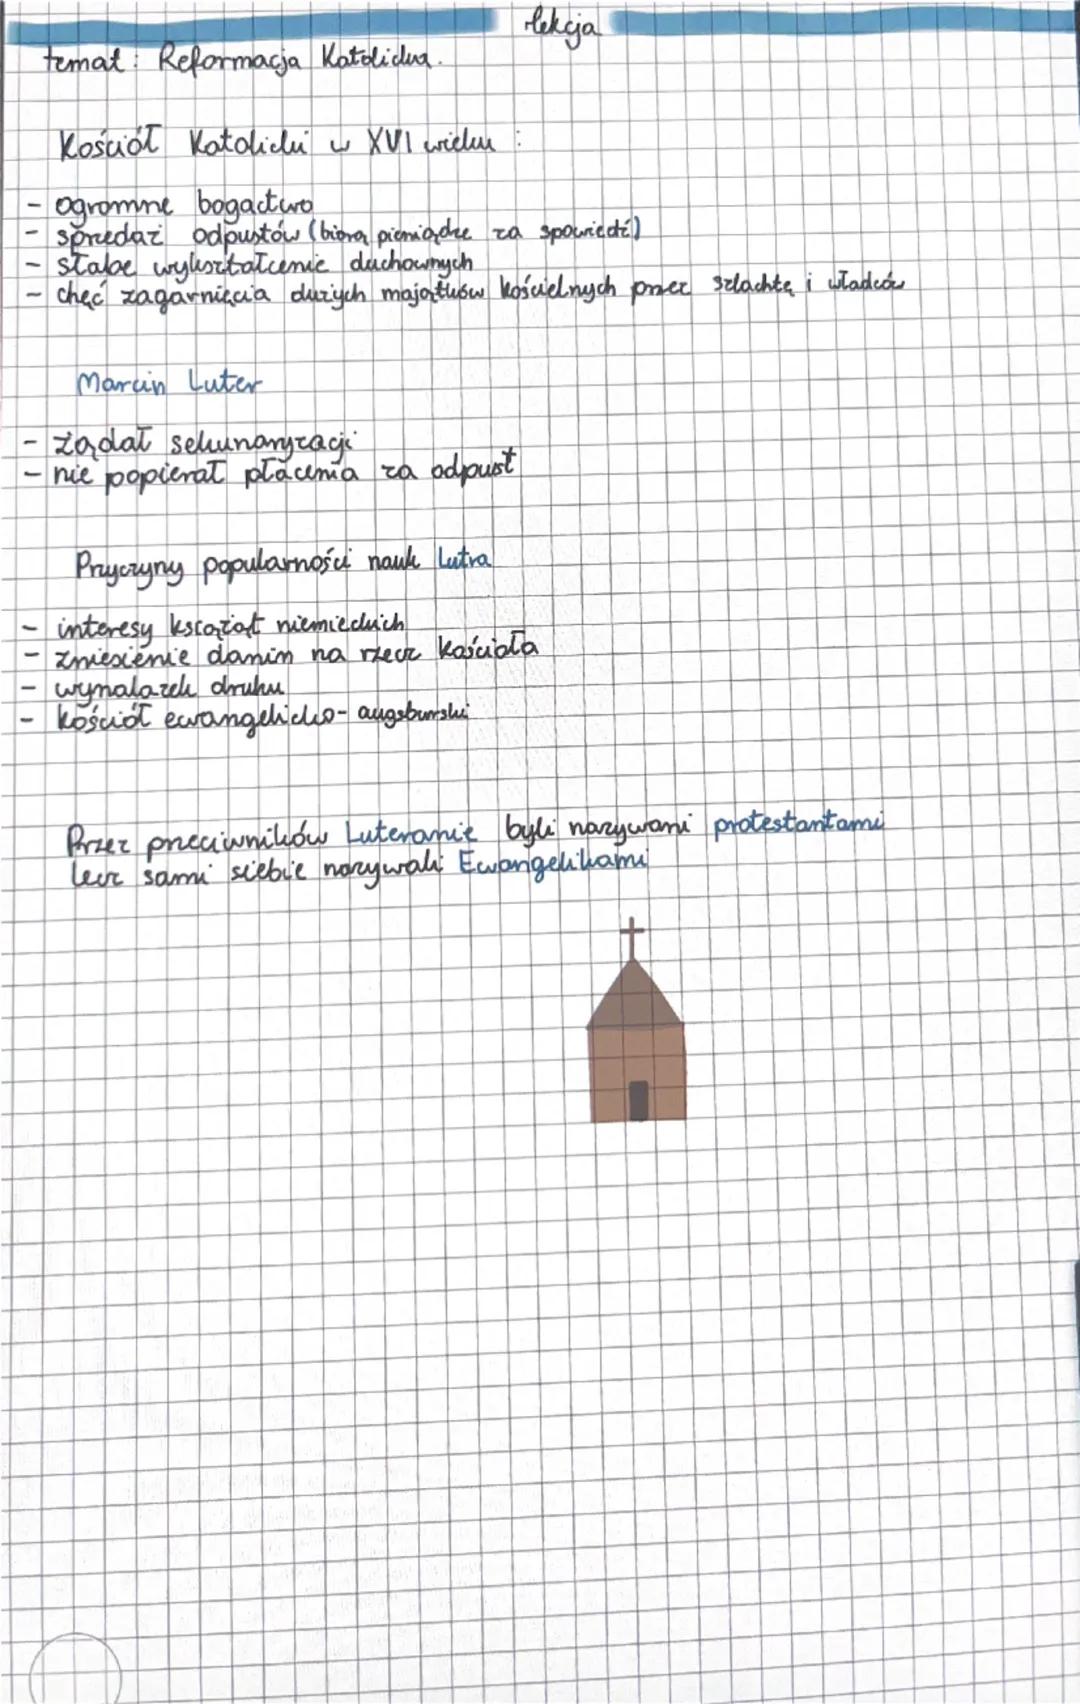 lekcja
temat: Reformacja Katolicka.
Kościół Katolicki w XVI wieku :
- ogromne bogactwo
- sprzedaż odpustów (biorą pieniądze za spowiedź)
- słabe wykształcenie duchownych
- chęć zagarnięcia dużych majątków kościelnych przez szlachtę i władców
Marcin Luter
- żądał sekunaryzacji
- nie popierał płacenia za odpust
Przyczyny popularności nauk Lutra
- interesy książąt niemieckich
- zniesienie danin na rzecz kościoła
- wynalazek druku
- kościół ewangelicko-augsburski
Przez przeciwników Luteranie byli nazywani protestantami
lecz sami siebie nazywali Ewangelikami